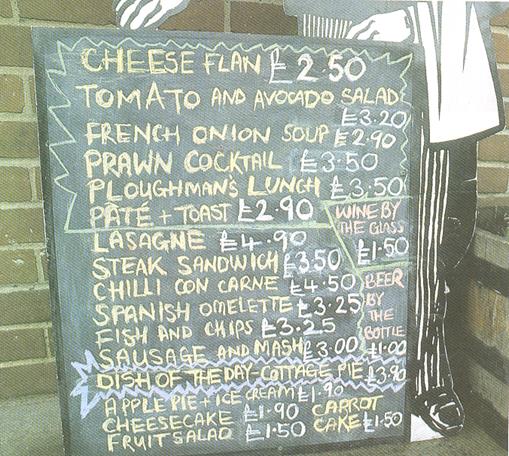 CHEESE FLAN £2.50
TOMATO AND AVOCADO SALAD
£3.20
FRENCH ONION SOUP £2.90
PRAWN COCKTAIL £3.50
PLOUGHMAN'S LUNCH £3.50
PÂTÉ + TOAST £2.90
LASAGNE £4.90
STEAK SANDWICH £3.50
CHILLI CON CARNE £4.50
SPANISH OMELETTE £3.25
FISH AND CHIPS £3.25
SAUSAGE AND MASH £3.00
WINE BY
THE GLASS
£1.50
BEER
BY
THE
BOTTLE
£1.00
DISH OF THE DAY-COTTAGE PIE £3.90
APPLE PIE + ICE CREAM £1.90
CHEESECAKE £1.90
FRUIT SALAD £1.50
CARROT
CAKE £1.50